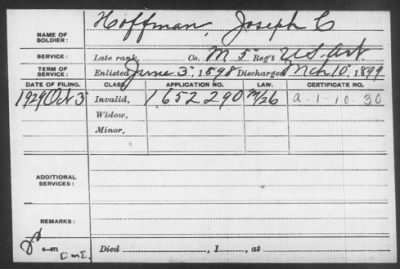 NAME OF SOLDIER: Hoffman, Joseph C
SERVICE: Late rank, Co. M 5" Reg't U.S. Art.
TERM OF SERVICE: Enlisted June 3", 1898 Discharged Mch 10", 1899
DATE OF FILING. CLASS. APPLICATION NO. LAW. CERTIFICATE NO.
1929 Oct 3 Invalid, 1,652,290 M/26 a-1-10-30
Widow,
Minor,
ADDITIONAL SERVICES:
REMARKS:
Died , 1 , at